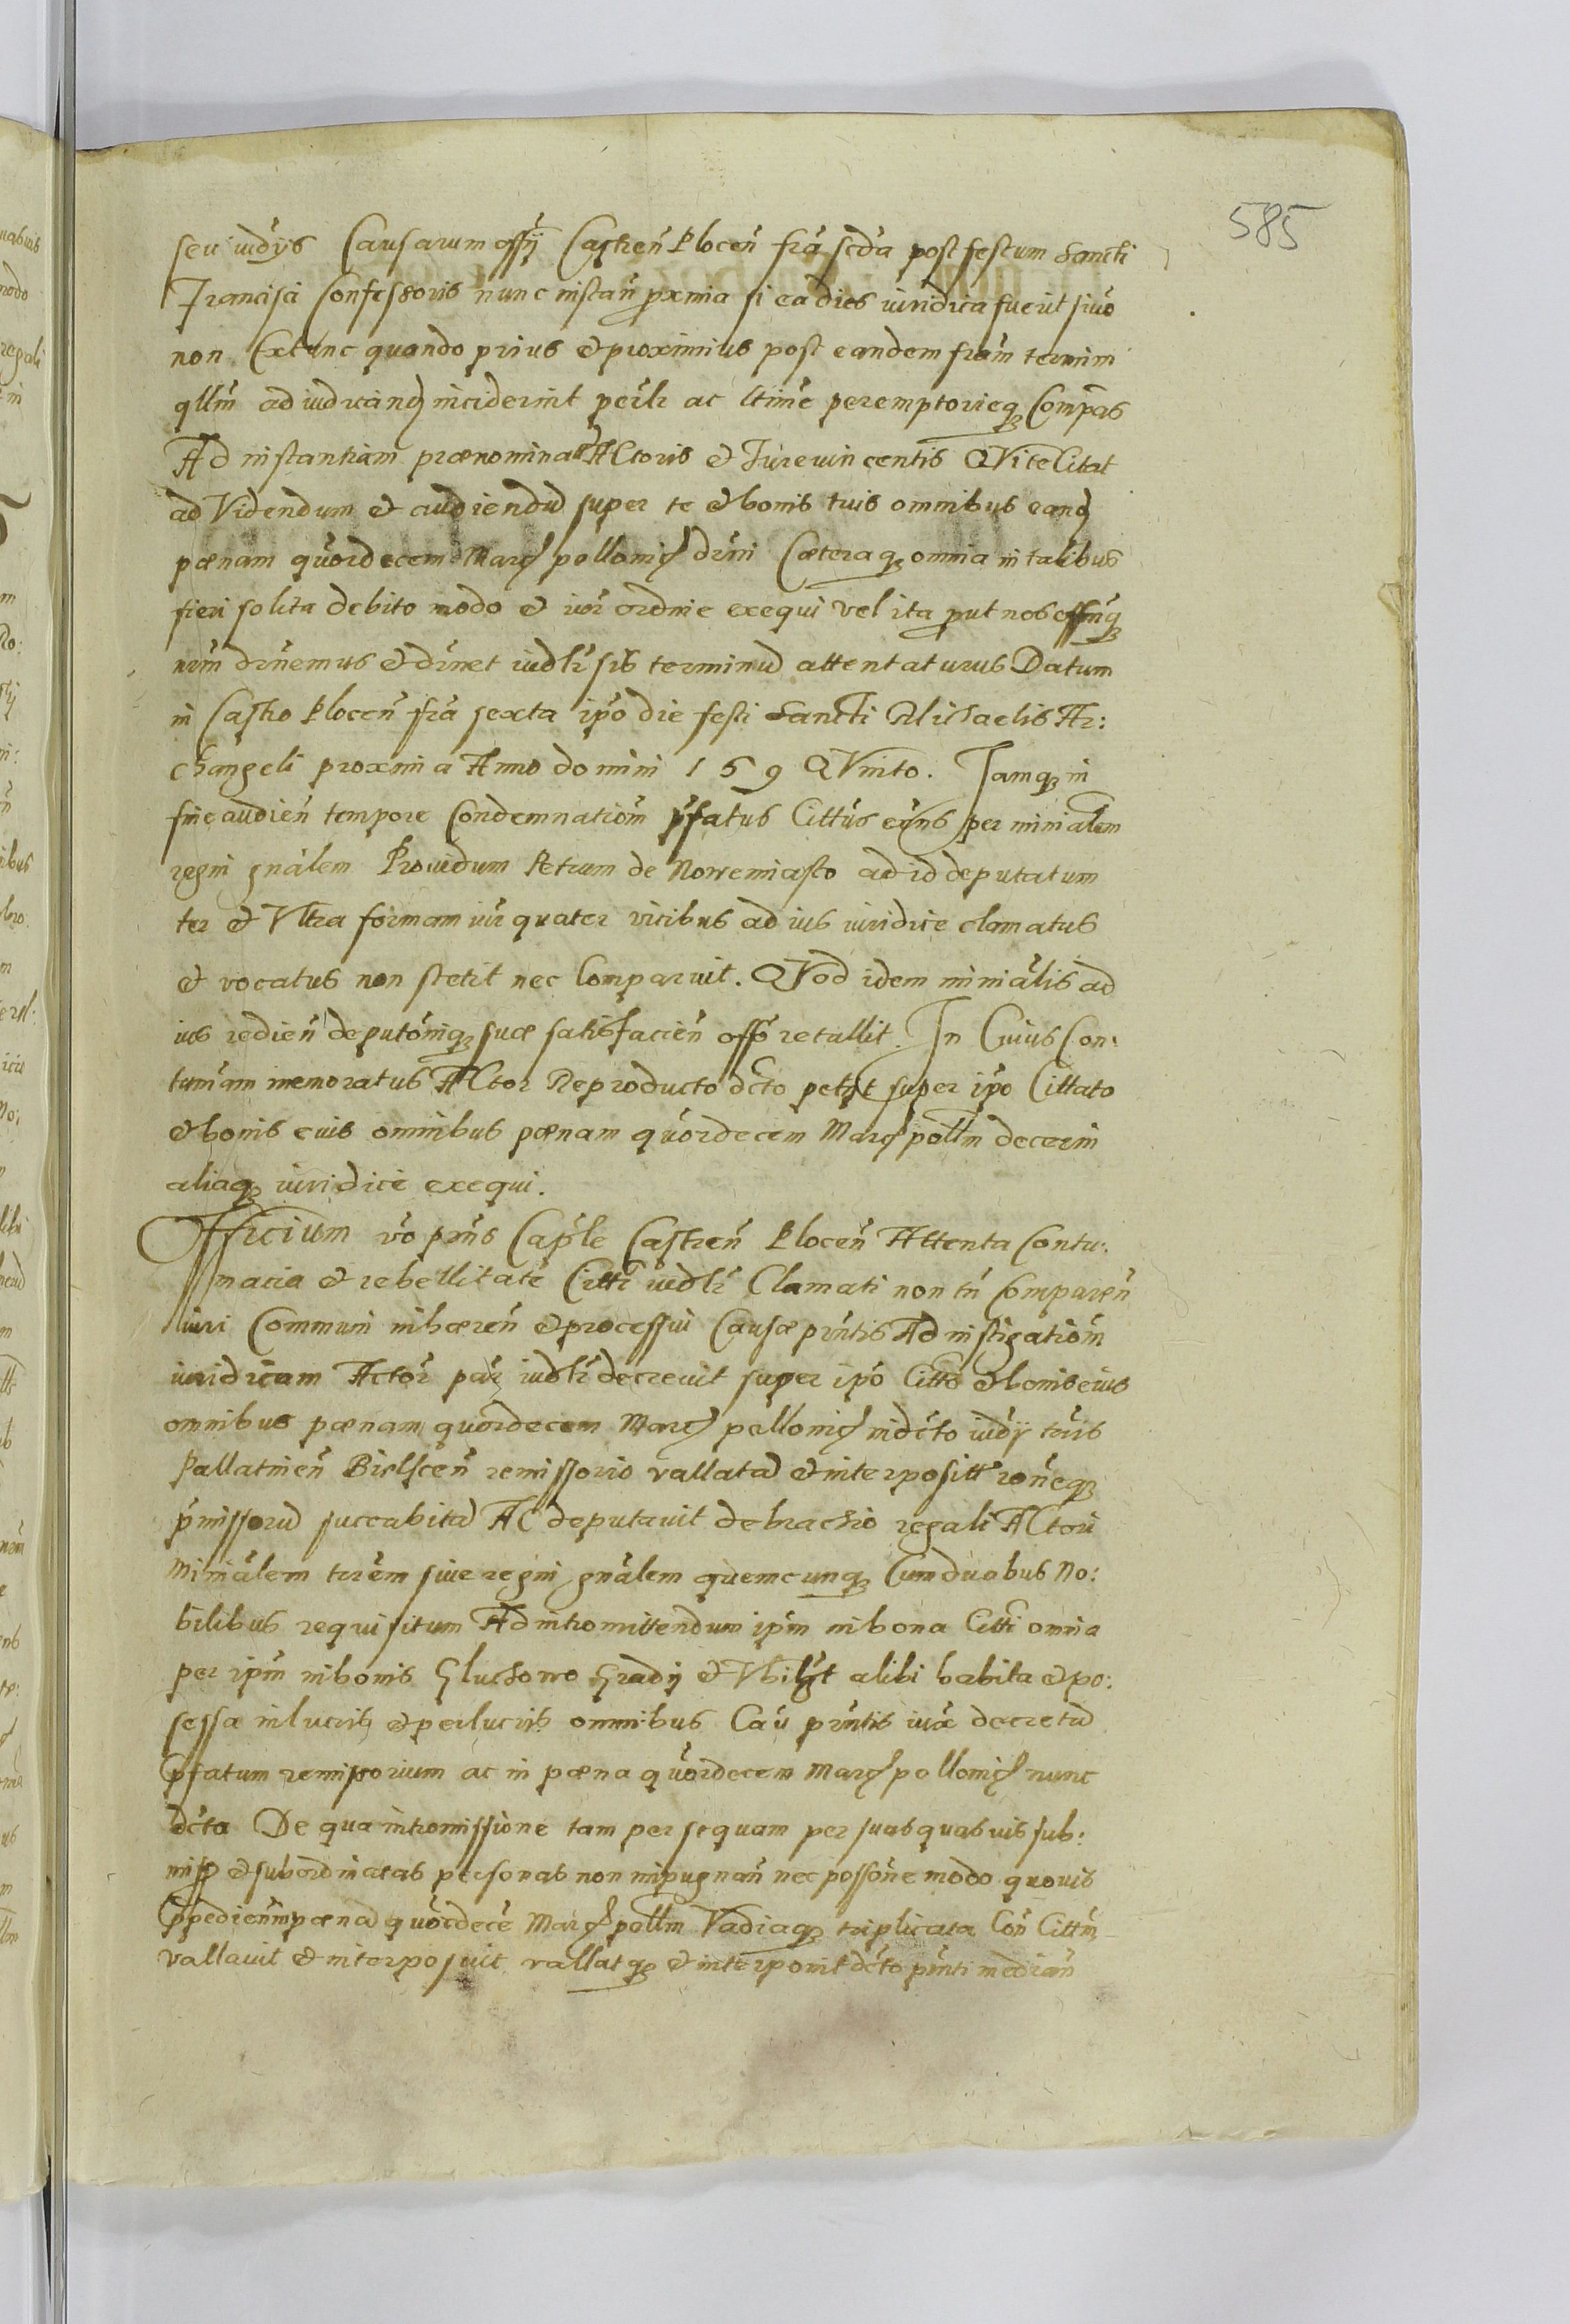 585
seu iudÿs Causarum offÿ Castren̄ Plocen̄ frā scd̄a post festum Sancti
Francisci Confessoris nunc instan̄ pxmia si ea dies iuridica fuerit sivō
non Extunc quando prius et proximius post eandem fram̄ termini
qllm̄ ad iudicand inciderint perlr ac ltimē peremptorieq Compas
Ad instantiam prænominati Actoris et Jurevincentis QVi te Citat
ad Videndum et audiendū super te et bonis tuis omnibus eand
pænam quordecem Marc pollonic drni Cæteraq omnia in talibus
fieri solita debito modo et iur ordine exequi vel ita put nos offmq
nrm drnemus et drnet iudlr sis terminū attentaturus Datum
in Castro Plocen̄ frā sexta ipō die festi Sancti Michaelis Ar:
changeli proxima Anno domini 1 5 9 QVinto. Jamq in
fine audien̄ tempore Condemnatiom̄ pfatus Cittūs exn̄s per minialem
regni gnālem Providum Petrum de Nowemiasto ad id deputatum
ter et Vltra formam iur quater vicibus ad ius iuridice clamatus
et vocatus non stetit nec Comparuit. QVod idem miniālis ad
ius redien̄ deputōniq suæ satisfacien̄ offo retullit. In Cuius Con:
tumam memoratus Actor Reproducto dcto petyt super ipō Cittato
et bonis euis omnibus pænam quordecem Marc pollm decerni
aliaq iuridicè exequi.
Officium vō pns Caple Castren̄ Plocen̄ Attenta Contu:
macia et rebellitate Citti iudlr Clamati non tn̄ Comparen̄
iuri Communi inhæren̄ et processui Causæ pntis Ad instigatiom̄
iuridicam Actōr par iudlr decrevit super ipō Citto et bonis eius
omnibus pænam quordecem Marc pollonic in dcto iudÿ trris
Pallatinen̄ Bielscen̄ remissorio vallatā et interposittā rōneq
pmissorū succubitā AC deputavit de brachio regali Actori
Miniālem trrem̄ sive regni gnālem quemcunq Cum duobus No:
bilibus requisitum Ad intromittendum ipm̄ in bona Citti omnia
per ipm̄ in bonis Gluchowo Gradÿ et Vbilbt alibi habita et po:
sessa in lucris et perlucris omnibus Cau pntis iuxa decretū
pfatum remissorium ac in pæna quordecem Marc pollonic nunc
dcta De qua intromissione tam per se quam per suas quasvis sub:
miss et subordinatas personas non impugnan̄ nec possone modo quovis
Ippedien̄ in pæna quordece Marc pollm Vadiaq triplicata Con Cittm
vallavit et interposuit vallatq et interponit dcto pnti median̄